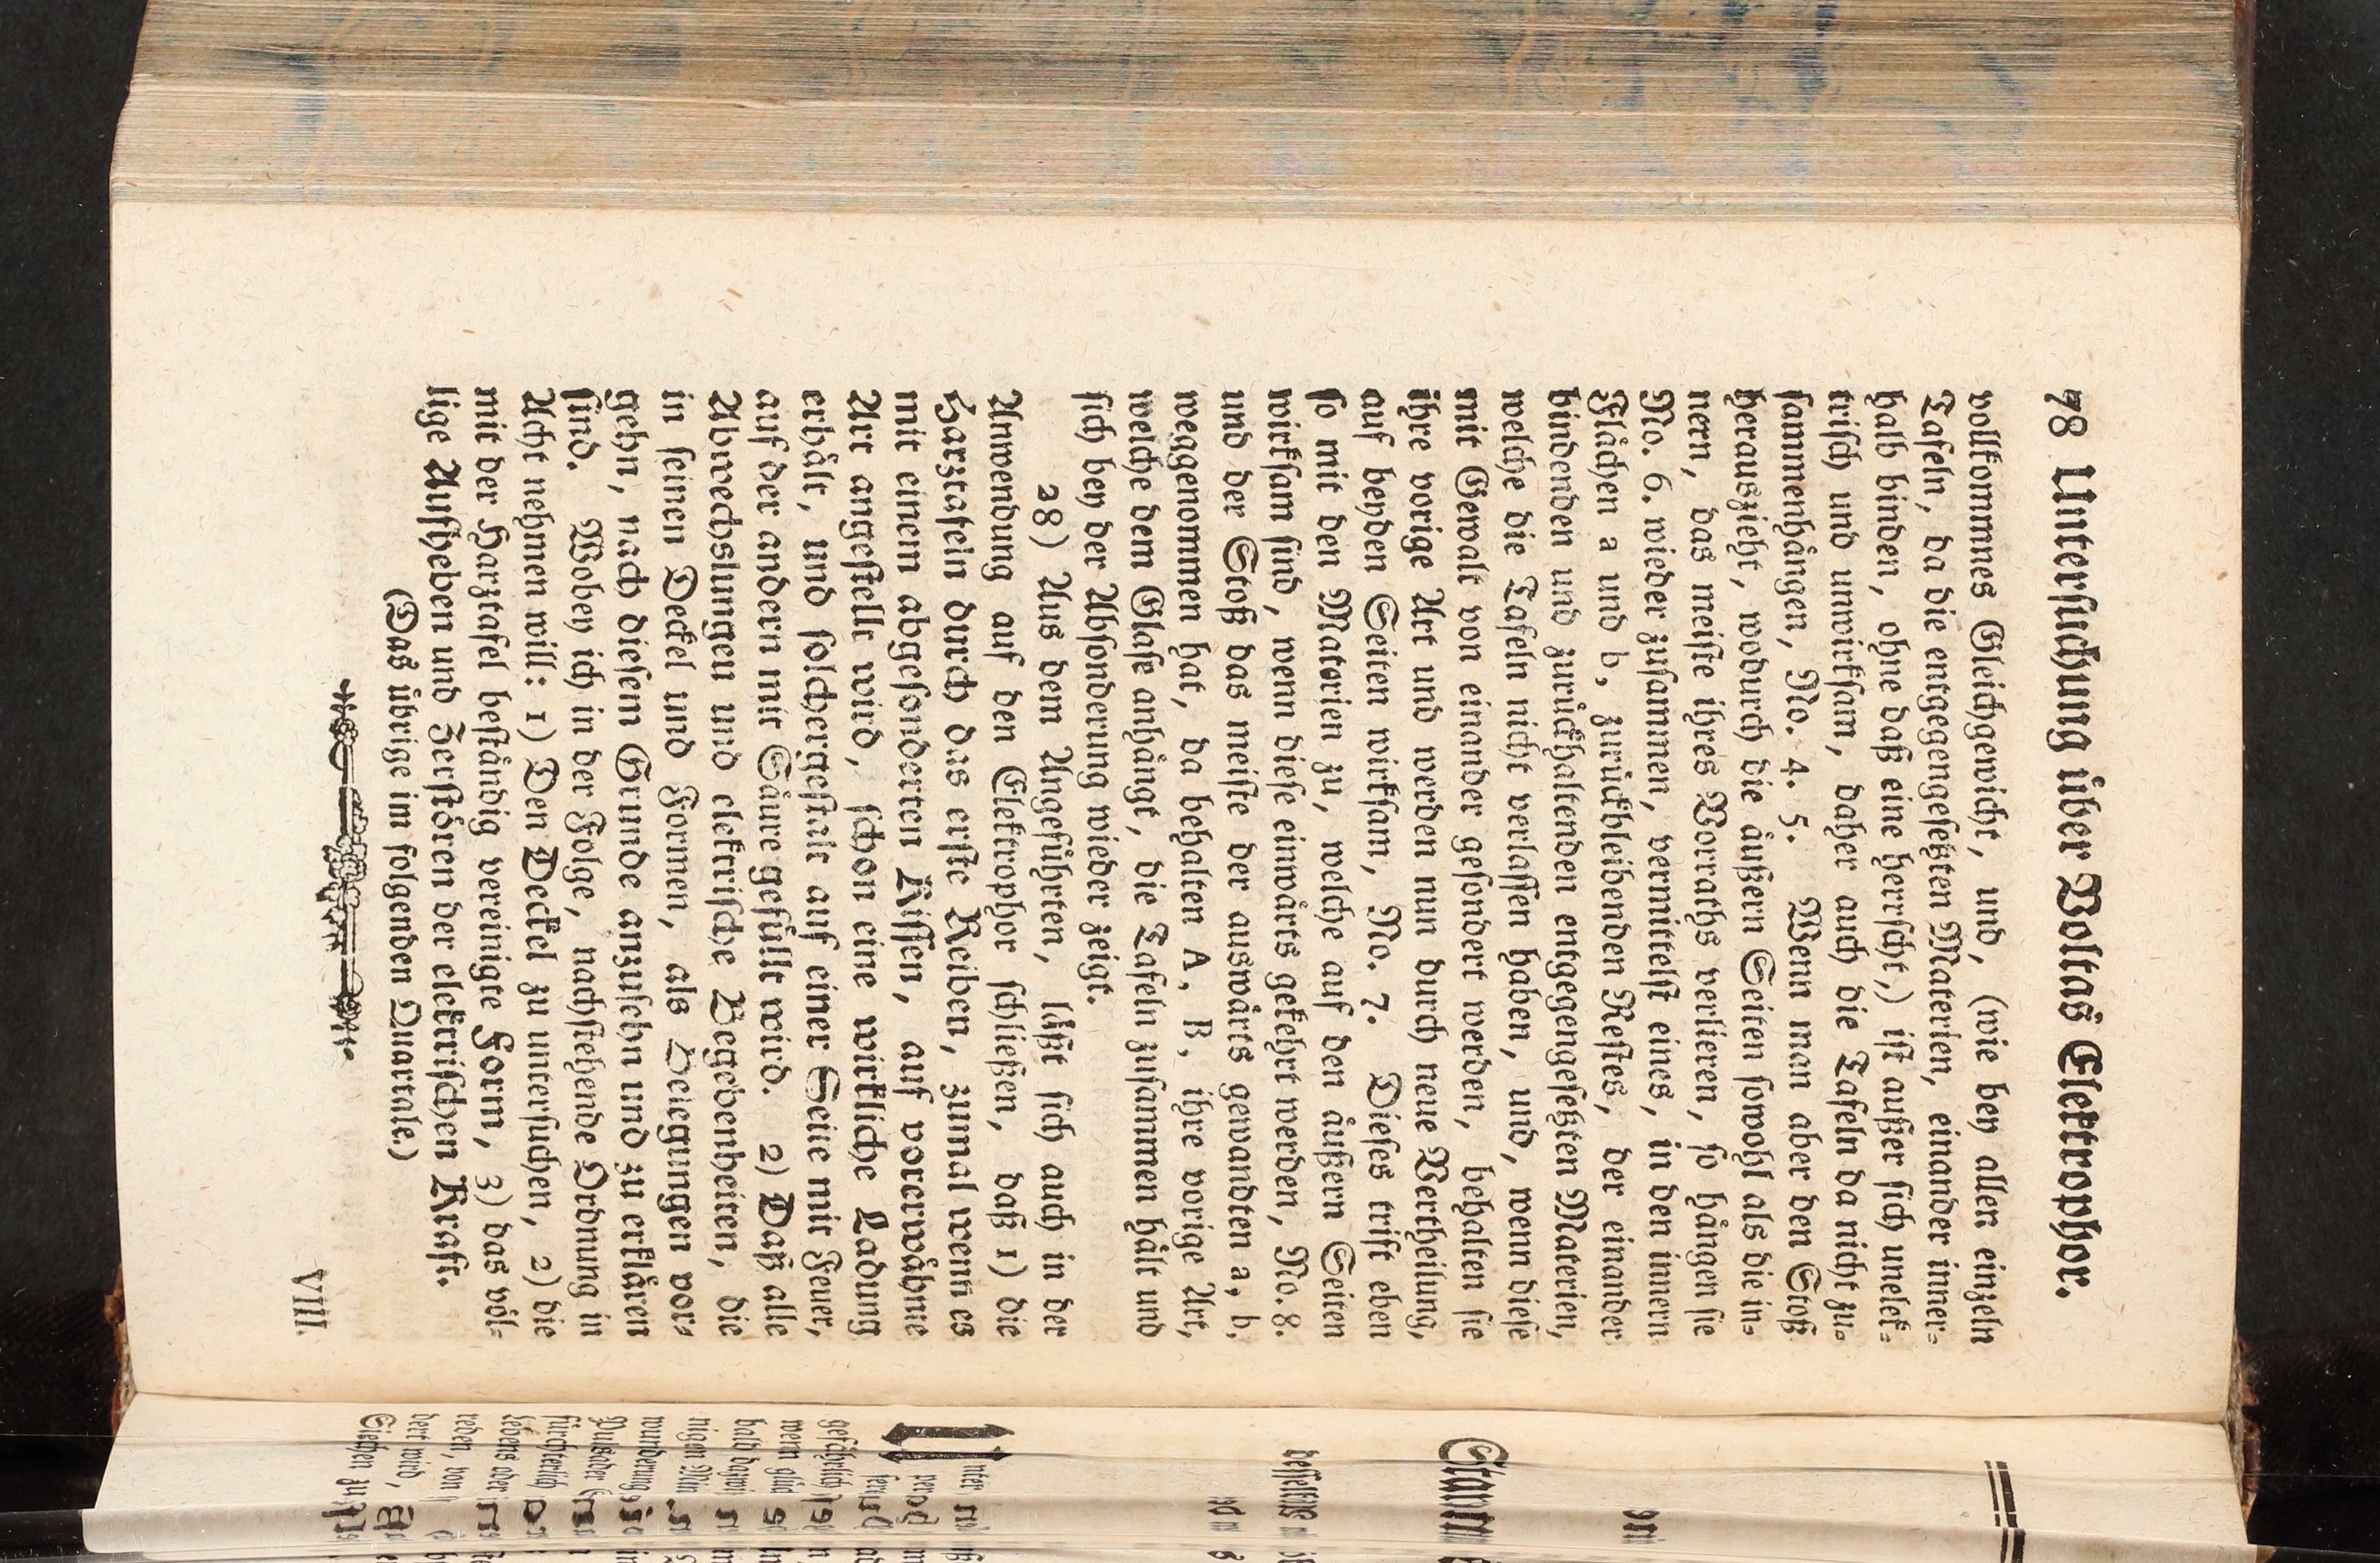 78 Unterſuchung über Voltas Elektrophor.
vollkommnes Gleichgewicht, und, (wie bey allen einzeln
Tafeln, da die entgegengeſetzten Materien, einander inner⸗
halb binden, ohne daß eine herrſcht,) iſt außer ſich unelek⸗
triſch und unwirkſam, daher auch die Tafeln da nicht zu⸗
ſammenhängen, No. 4. 5. Wenn man aber den Stoß
herauszieht, wodurch die äußern Seiten ſowohl als die in⸗
nern, das meiſte ihres Vorraths verlieren, ſo hängen ſie
No. 6. wieder zuſammen, vermittelſt eines, in den innern
Flächen a und b, zurückbleibenden Reſtes, der einander
bindenden und zurückhaltenden entgegengeſetzten Materien,
welche die Tafeln nicht verlaſſen haben, und, wenn dieſe
mit Gewalt von einander geſondert werden, behalten ſie
ihre vorige Art und werden nun durch neue Vertheilung,
auf beyden Seiten wirkſam, No. 7. Dieſes trift eben
ſo mit den Materien zu, welche auf den äußern Seiten
wirkſam ſind, wenn dieſe einwärts gekehrt werden, No. 8.
und der Stoß das meiſte der auswärts gewandten a, b,
weggenommen hat, da behalten A, B, ihre vorige Art,
welche dem Glaſe anhängt, die Tafeln zuſammen hält und
ſich bey der Abſonderung wieder zeigt.
28) Aus dem Angeführten, läßt ſich auch in der
Anwendung auf den Elektrophor ſchließen, daß 1) die
Harztafeln durch das erſte Reiben, zumal wenn es
mit einem abgeſonderten Küſſen, auf vorerwähnte
Art angeſtellt wird, ſchon eine wirkliche Ladung
erhält, und ſolchergeſtalt auf einer Seite mit Feuer,
auf der andern mit Säure gefüllt wird. 2) Daß alle
Abwechslungen und elektriſche Begebenheiten, die
in ſeinen Deckel und Formen, als Belegungen vor⸗
gehn, nach dieſem Grunde anzuſehn und zu erklären
ſind. Wobey ich in der Folge, nachſtehende Ordnung in
Acht nehmen will: 1) Den Deckel zu unterſuchen, 2) die
mit der Harztafel beſtändig vereinigte Form, 3) das völ⸗
lige Aufheben und Zerſtören der elektriſchen Kraft.
(Das übrige im folgenden Quartale.)
VIII.